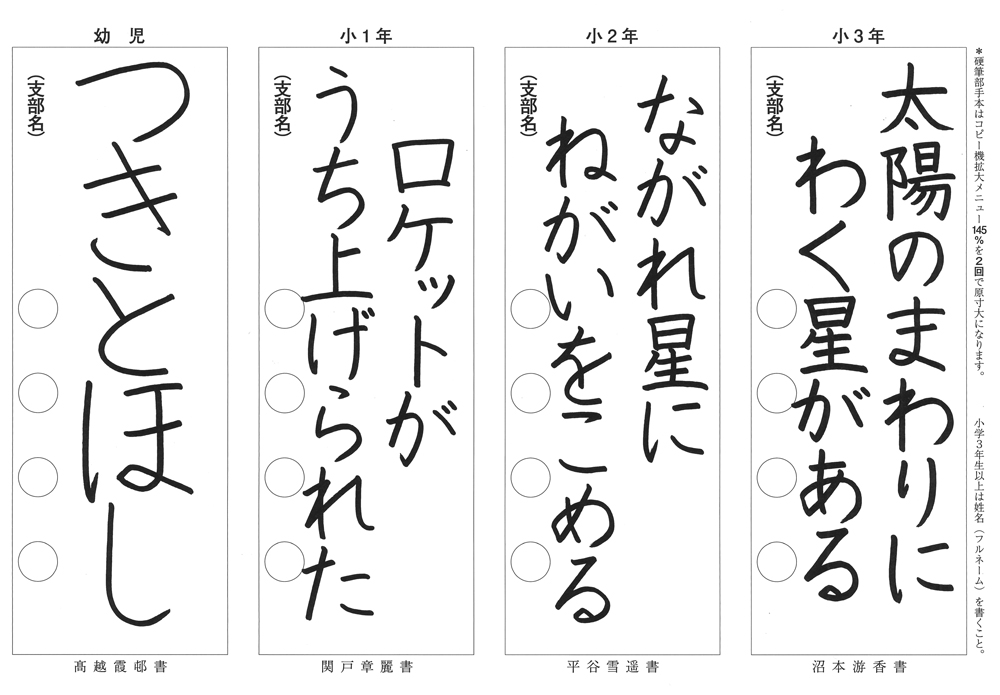 幼児
つきとほし
（支部名）
髙越霞邨書
小1年
ロケットが
うち上げられた
（支部名）
関戸章麗書
小2年
ながれ星に
ねがいをこめる
（支部名）
平谷雪遥書
小3年
太陽のまわりに
わく星がある
（支部名）
沼本游香書
＊硬筆部手本はコピー機拡大メニュー145%を2回で原寸大になります。
小学3年生以上は姓名（フルネーム）を書くこと。